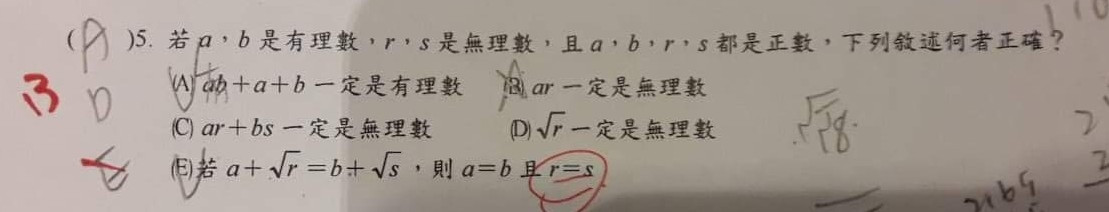 (A)5. 若 a，b 是有理數，r，s 是無理數，且 a，b，r，s 都是正數，下列敘述何者正確？
B D (A) ab＋a＋b 一定是有理數 (B) ar 一定是無理數
(C) ar＋bs 一定是無理數 (D) √r 一定是無理數
E (E)若 a＋√r＝b＋√s，則 a＝b 且 r＝s